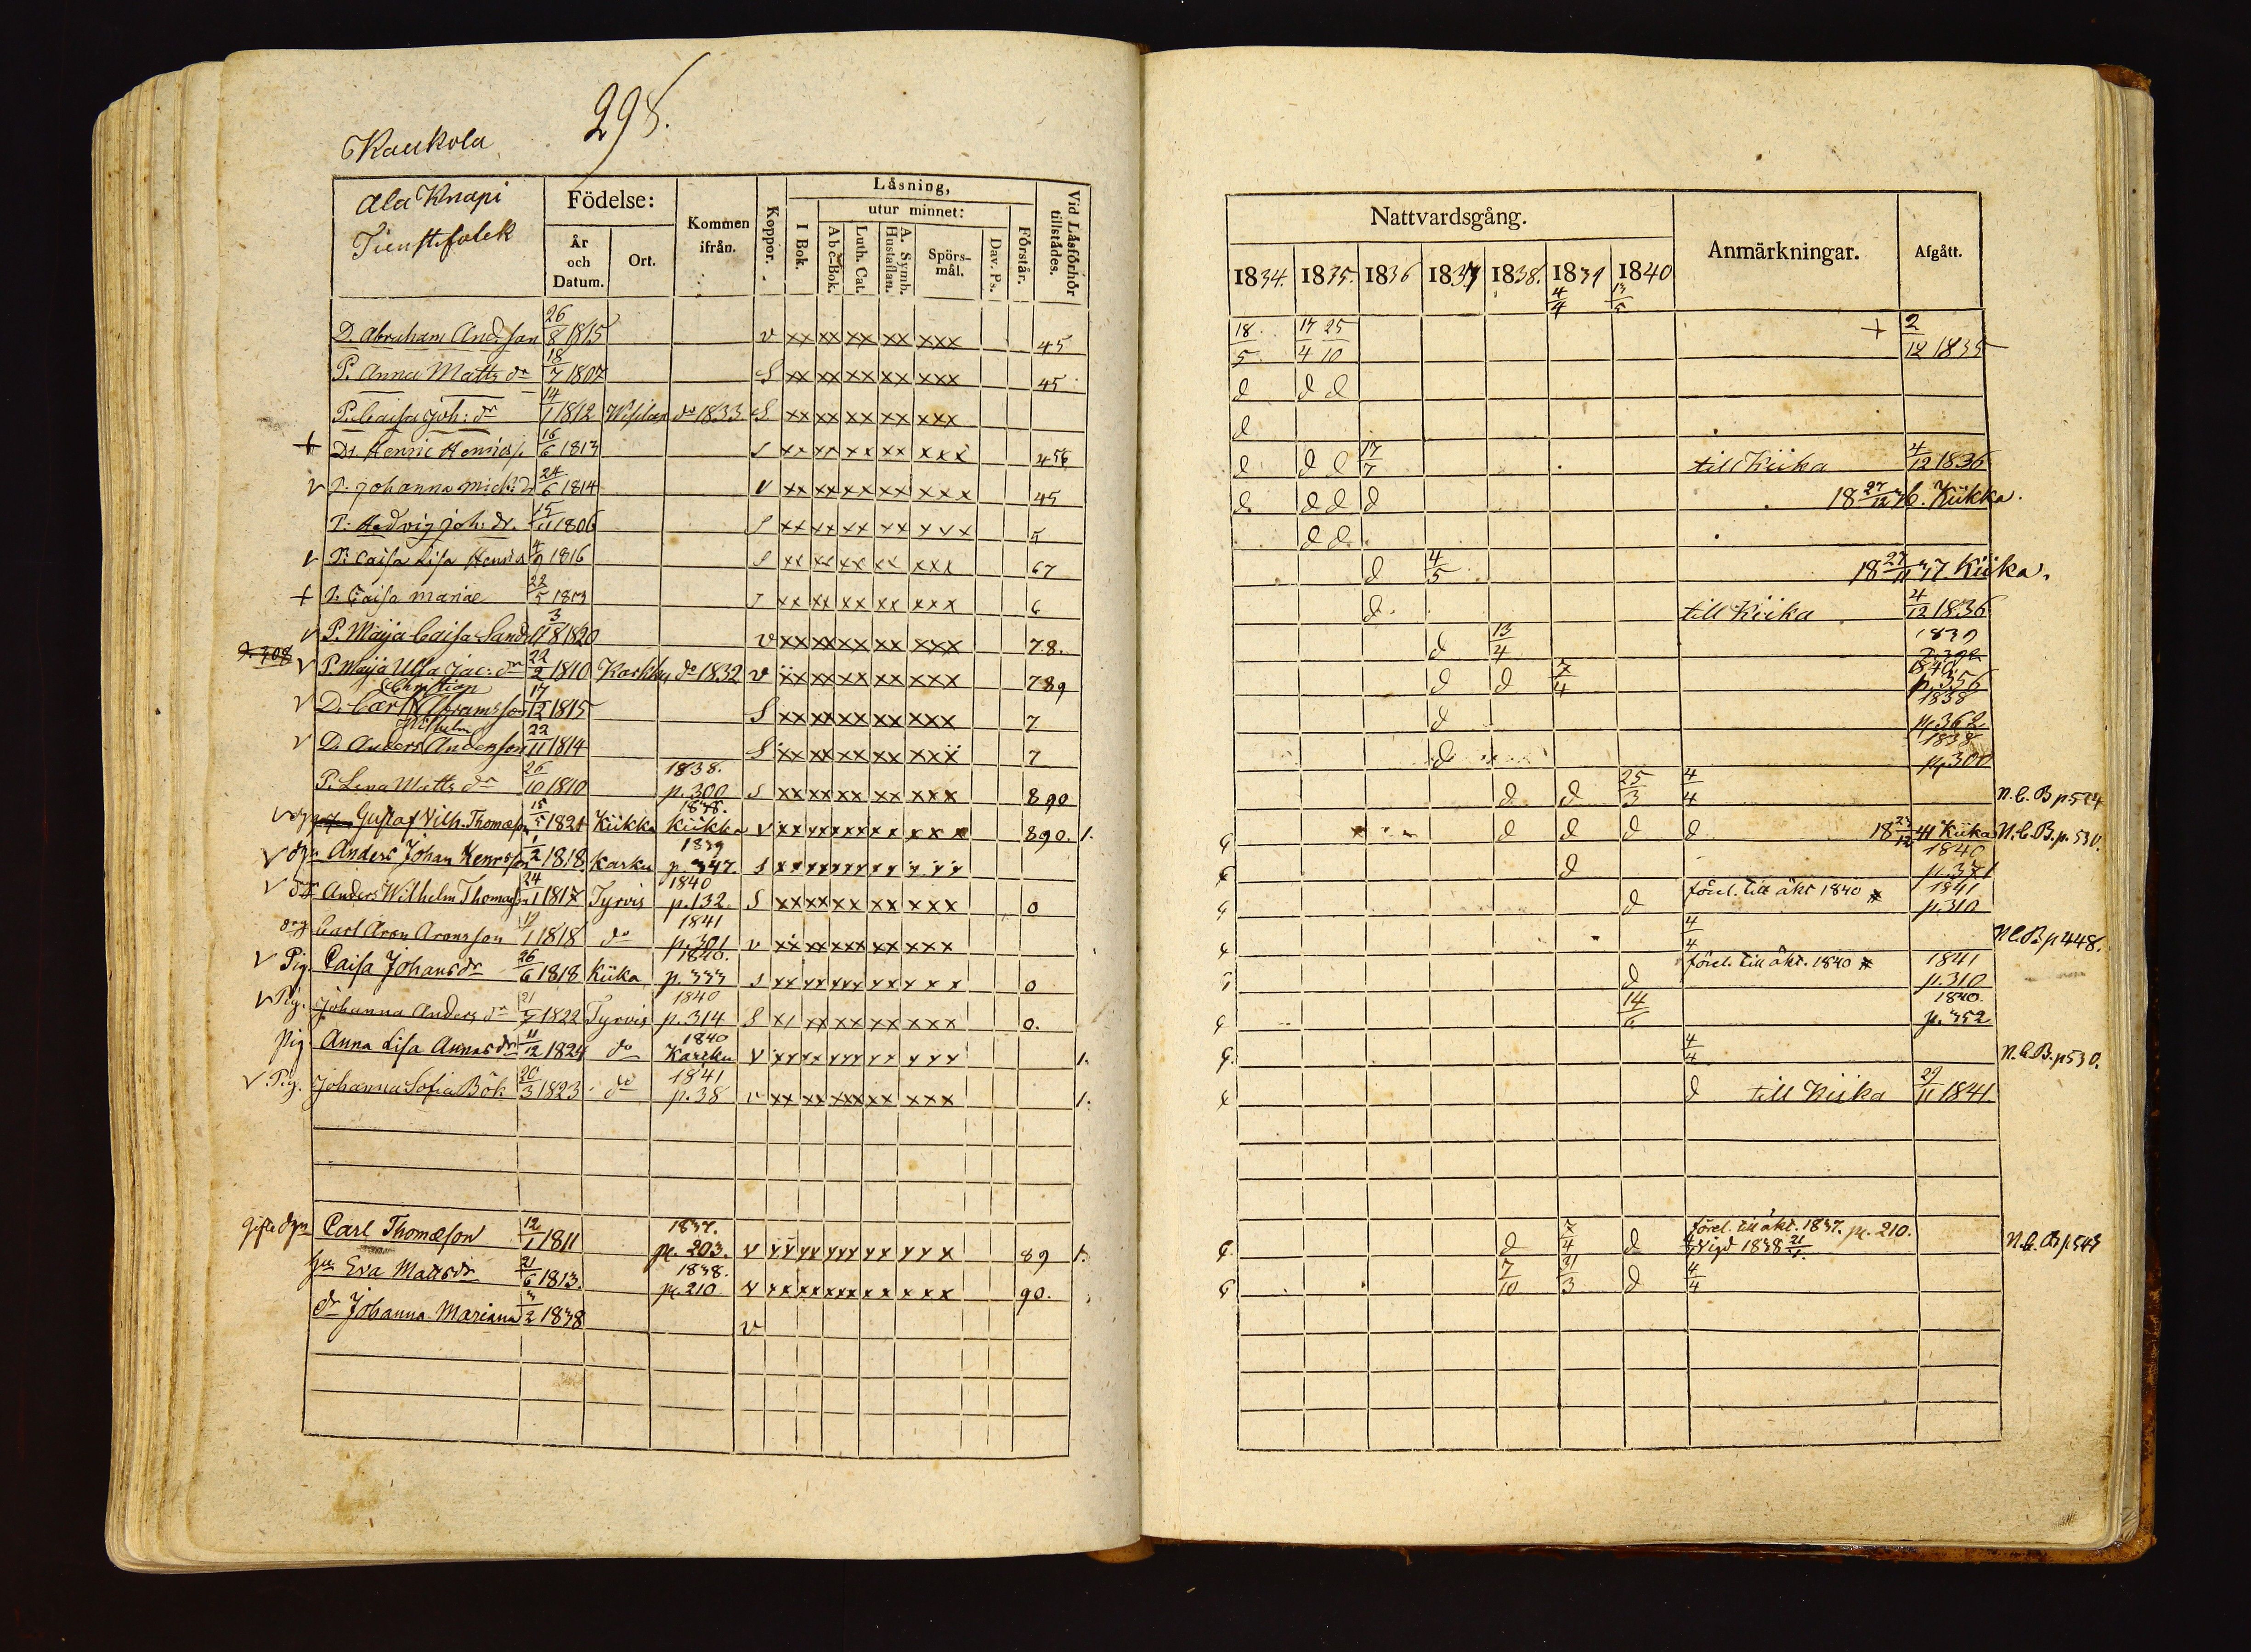 298.
Kaukola
Ala Knapi
Tienstefolck
Födelse:
År och Datum.
Ort.
Kommen ifrån.
Koppor.
Läsning,
I Bok.
utur minnet:
Abc-Bok.
Luth. Cat.
A. Symb. Hustaflan.
Spörs-mål.
Dav. Ps.
Förstår.
Vid Läsförhör tillstädes.
D. Abraham Andsson 26/8 1815 v xx xx xx xx xxx 45
P. Anna Matts dr 18/7 1807 S xx xx xx xx xxx 45
P. Caisa Joh: dr 14/1 1812 do 1833 S xx xx xx xx xxx
+ Dr Henric Henrics 16/6 1813 S xx xx xx xx xxx 456
v P. Johanna Mich: D 24/6 1814 v xx xx xx xx xxx 45
P. Hedvig Joh: dr. 15/11 1806 S xx xx xx xx xxx 5
v P. Caisa Lisa Henrics 4/9 1816 S xx xx xx xx xxx 67
+ P. Caisa Mariae 22/5 1813 S xx xx xx xx xxx 6
v P. Maija Caisa Sand 3/8 1820 v xx xx xx xx xxx 78.
p. 308 v P. Maija Ulla Jac: dr 22/2 1810 Karkku do 1832 v xx xx xx xx xxx 789
Christian
v D. Carl Abramsson 17/12 1815 S xx xx xx xx xxx 7
Wilhelm
v D. Anders Andersson 22/11 1814 S xx xx xx xx xxx 7
P. Lena Matts dr 26/10 1810 1838. p. 300 S xx xx xx xx xxx 890
v Gustaf Vilh. Thomæson 15/5 1821 Kiikka 1838. Kiikka v xx xx xx xx xxx 890. 1.
v dr. Anders Johan Henrsson 1/2 1818 Karku 1839 p. 347. S xx xx xx xx xxx
v dr Anders Wilhelm Thomasson 24/1 1817 Tyrvis 1840 p. 132. S xx xx xx xx xxx 0
drg Carl Aron Aronsson 19/1 1818 do 1841 p. 301 v xx xx xx xx xxx
v Pig. Caisa Johansdr 26/6 1818 Kiika 1840. p. 333 S xx xx xx xx xxx 0
v Pig. Johanna Anders dr 21/7 1822 Tyrvis 1840 p. 314 S xx xx xx xx xxx 0.
Pig. Anna Lisa Annasdr 11/12 1824 do 1840 Karcku v xx xx xx xx xxx 1.
v Pig. Johanna Sofia Bök. 20/3 1823 do 1841 p. 38 v xx xx xx xx xxx 1.
Gifte drn Carl Thomæson 12/1 1811 1837. p. 203. v xx xx xx xx xxx 89 1.
hu Eva Mattsdr 21/6 1813. 1838. p. 210 v xx xx xx xx xxx 90.
dr Johanna Mariana 3/2 1838 v
Nattvardsgång.
Anmärkningar.
Afgått.
1834. 1835. 1836 1837 1838. 1839 1840
4/4 13/5
18/5 17/4 25/10 + 2/12 1835
d d d
d
d d d 17/7 till Kiika 4/12 1836
d. d d d 18 27/12 36. Kiikka.
d d.
d 4/5 18 27/11 37 Kiika.
d. till Kiika 4/12 1836
d 13/4 1839
d d 7/4 1840. p. 356
d 1838 p. 362
d 1838 p. 300
d d 25/3 4/4 N.C.B p 524
d d d d 18 23/12 41 Kiika N.C.B. p. 530.
d 1840 p. 371
d förel. till äkt 1840 1841 p. 310
4/4 N C. B p 448.
d förel. till äkt. 1840 1841 p. 310
14/6 1840. p. 352
4/4 N. C. B. p 530.
d till Kiika 29/11 1841
d 7/4 d förel. till äkt. 1837. p. 210.
4/4 Vigd 1838 21/1. N. C. B p 543
7/10 31/3 d 4/4